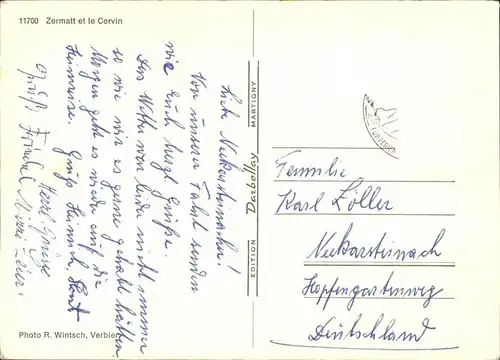 11700 Zermatt et le Cervin
Liebe Neckarsteinacher!
Von unserer Fahrt senden
wir Euch herzl. Grüße.
Das Wetter war leider nicht immer
so wie wir es gerne gehabt hätten
Morgen geht es wieder auf die
Heimreise. Gruß Heinrich,
Herzl. Grüße
Gruß
EDITION Darbellay MARTIGNY
Familie
Karl Löller
Neckarsteinach
Hopfengartenweg
Deutschland
Photo R. Wintsch, Verbier